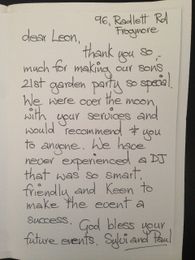 96, Radlett Rd
Frogmore
dear Leon,
thank you so
much for making our sons
21st garden party so special.
We were over the moon
with your services and
would recommend you
to anyone. We have
never experienced a DJ
that was so smart,
friendly and Keen to
make the event a
success.
God bless your
future events. Sylvi and Paul